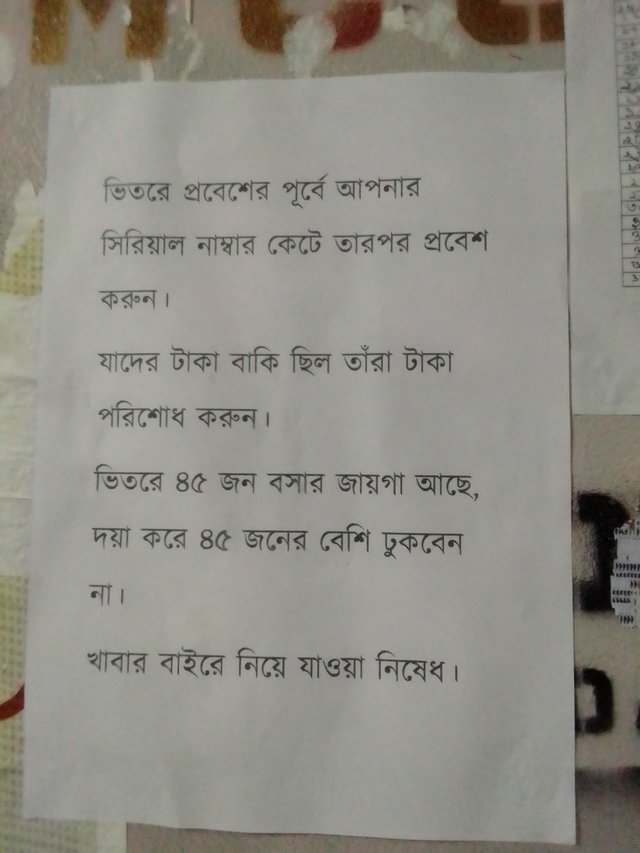 ভিতরে প্রবেশের পূর্বে আপনার
সিরিয়াল নাম্বার কেটে তারপর প্রবেশ
করুন।
যাদের টাকা বাকি ছিল তাঁরা টাকা
পরিশোধ করুন।
ভিতরে ৪৫ জন বসার জায়গা আছে,
দয়া করে ৪৫ জনের বেশি ঢুকবেন
না।
খাবার বাইরে নিয়ে যাওয়া নিষেধ।